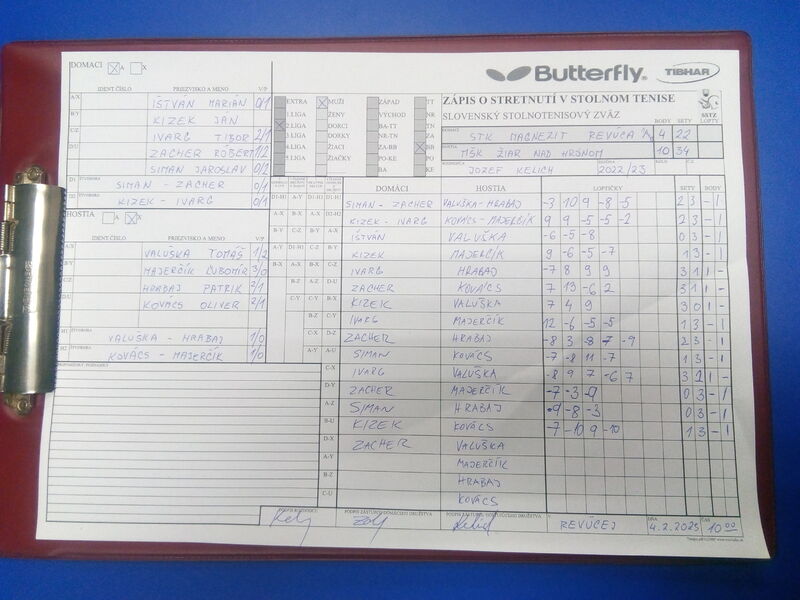 DOMÁCI A X
Butterfly
TIBHAR
IDENT ČÍSLO PRIEZVISKO A MENO V/P
A/X IŠTVÁN MARIÁN 0/1
B/Y KIZEK JÁN
C/Z IVARG TIBOR 2/1
D/U ZACHER RÓBERT 1/2
SIMAN JAROSLAV 0/2
D1 ŠTVORHRA SIMAN - ZACHER 0/1
D2 ŠTVORHRA KIZEK - IVARG 0/1
EXTRA MUŽI ZÁPAD TT
1.LIGA ŽENY VÝCHOD NR
2.LIGA DORCI BA-TT TN
3.LIGA DORKY NR-TN ZA
4.LIGA ŽIACI ZA-BB BB
5.LIGA ŽIAČKY PO-KE PO
BA KE
ZÁPIS O STRETNUTÍ V STOLNOM TENISE
SLOVENSKÝ STOLNOTENISOVÝ ZVÄZ
BODY SETY LOPTY
DOMÁCI STK MAGNEZIT REVÚCA "A" 4 22
HOSTIA MŠK ŽIAR NAD HRONOM 10 34
JOZEF KELICH 2022/23
HOSTIA A X
IDENT ČÍSLO PRIEZVISKO A MENO V/P
A/X VALUŠKA TOMÁŠ 1/2
B/Y MAJERČÍK ĽUBOMÍR 3/0
C/Z HRABAJ PATRIK 2/1
D/U KOVÁCS OLIVER 2/1
H1 ŠTVORHRA VALUŠKA - HRABAJ 1/0
H2 ŠTVORHRA KOVÁCS - MAJERČÍK 1/0
DOMÁCI HOSTIA LOPTIČKY SETY BODY
D1-H1 SIMAN - ZACHER VALUŠKA-HRABAJ -3 10 9 -8 -5 2 3 - 1
D2-H2 KIZEK - IVARG KOVÁCS-MAJERČÍK 9 9 -5 -5 -2 2 3 - 1
A-X IŠTVÁN VALUŠKA -6 -5 -8 0 3 - 1
B-Y KIZEK MAJERČÍK 9 -6 -5 -7 1 3 - 1
C-Z IVARG HRABAJ -7 8 9 9 3 1 1 -
D-U ZACHER KOVÁCS 7 13 -6 2 3 1 1 -
B-X KIZEK VALUŠKA 7 4 9 3 0 1 -
C-Y IVARG MAJERČÍK 12 -6 -5 -5 1 3 - 1
D-Z ZACHER HRABAJ -8 3 8 -7 -9 2 3 - 1
A-U SIMAN KOVÁCS -7 -8 11 -7 1 3 - 1
C-X IVARG VALUŠKA -8 9 7 -6 7 3 2 1 -
D-Y ZACHER MAJERČÍK -7 -3 -9 0 3 - 1
A-Z SIMAN HRABAJ -9 -8 -3 0 3 - 1
B-U KIZEK KOVÁCS -7 -10 9 -10 1 3 - 1
D-X ZACHER VALUŠKA
A-Y MAJERČÍK
B-Z HRABAJ
C-U KOVÁCS
PODPIS ROZHODCU PODPIS ZÁSTUPCU DOMÁCEHO DRUŽSTVA PODPIS ZÁSTUPCU HOSŤUJÚCEHO DRUŽSTVA V REVÚCEJ DŇA 4.2.2023 ČAS 10 00